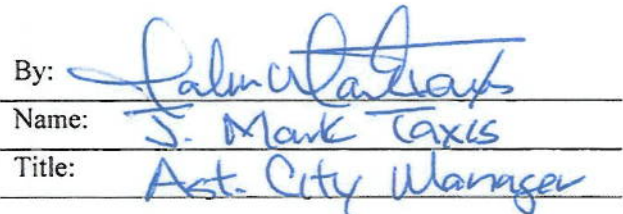 By:
Name: J. Mark Taxis
Title: Ast. City Manager